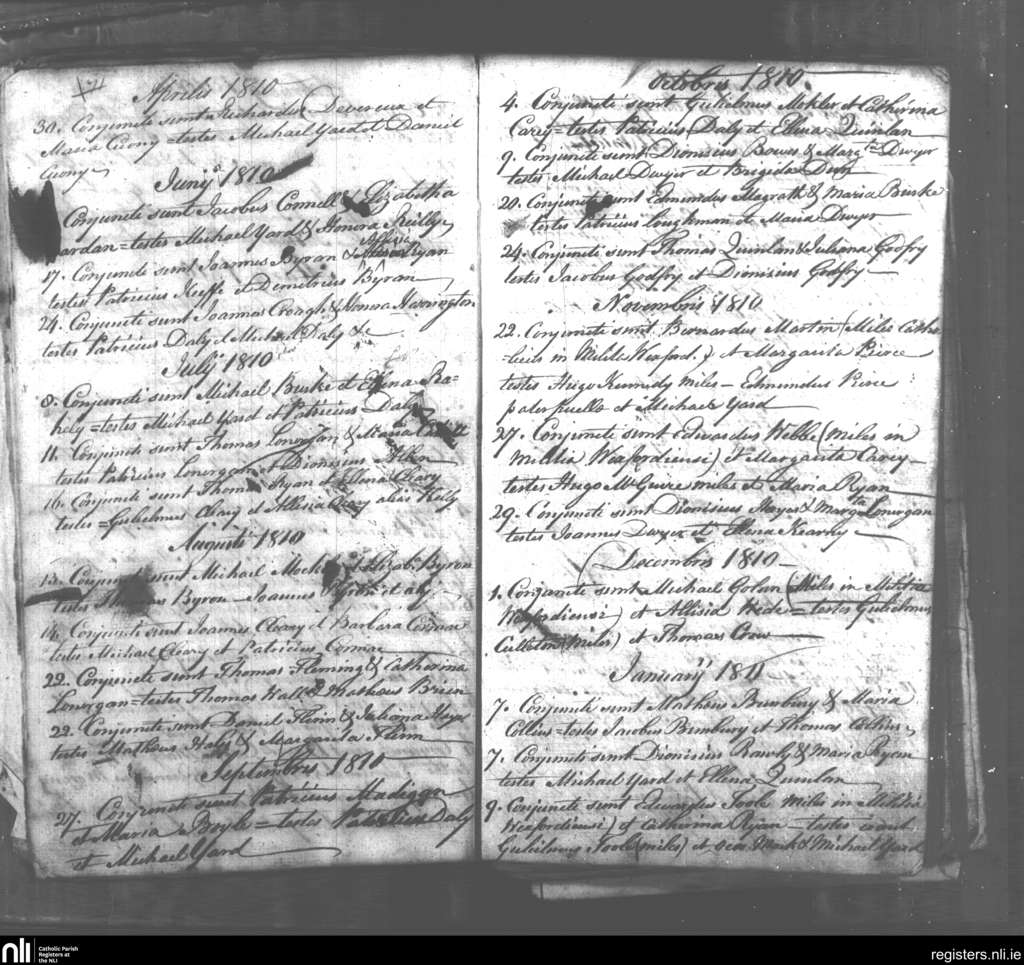 Aprilis 1810
30. Conjuncti sunt Richardus Devereux et
Maria Cuony = testes Michael Yard et Daniel
Cuony
Junij 1810
Conjuncti sunt Jacobus Connell & Elizabetha
ardan = testes Michael Yard & Honora Reilly
17. Conjuncti sunt Joannus Byran & Ryan
testes Patricius Keeffe et Demetrius Byran
24. Conjuncti sunt Joannas Croagh & Honora Harrington
testes Patricius Daly et Michael Daly &c
July 1810
8. Conjuncti sunt Michael Burke et Ellena Ra-
hely = testes Michael Yard et Patricius Daly
11. Conjuncti sunt Thomas Lonorgan & Maria
testes Patricius Lonorgan et Dionisius
16. Conjuncti sunt Thomas Ryan et Ellena Cleary
testes = Gulielmus Cleary et Allisia Cleary alias Kelly
Augusti 1810
13. Conjuncti sunt Michael et Elizab. Byron
testes Thomas Byron Joannus Byron et alij
14. Conjuncti sunt Joannes Cleary et Barbara Connor
testes Michael Cleary et Patricius Connor
22. Conjuncti sunt Thomas Fleming & Catherina
Lonorgan = testes Thomas Wall & Matheus Brien
22. Conjuncti sunt Daniel Flinn & Juliana
testes Matheus & Margarita Flinn
Septembris 1810
27. Conjuncti sunt Patricius Madigan
et Maria Boyle = testes Patricius Daly
et Michael Yard
Octobris 1810
4. Conjuncti sunt Gulielmus Mokler et Catherina
Carey = testes Patricius Daly et Ellena Quinlan
9. Conjuncti sunt Dionisius Bowes & Margta Dwyer
testes Michael Dwyer et Brigida
20. Conjuncti sunt Edmundus Magrath & Maria Burke
testes Patricius Loughman et Maria Dwyer
24. Conjuncti sunt Thomas Quinlan & Juliana Godfry
testes Jacobus Godffry et Dionisius Godffry
Novembris 1810
22. Conjuncti sunt Bernardus Martin (Miles Catho-
licus in Militia Wexford.) et Margarita Pierce
testes Hugo Kennedy miles - Edmundus Pierce
pater puella et Michael Yard
27. Conjuncti sunt Edwardus Webbe (Miles in
Militia Wexfordiensi) et Margarita Carey
testes Hugo McGuire miles et Maria Ryan
29. Conjuncti sunt Dionisius Hayes & Margta Lonorgan
testes Joannes Dwyer et Ellena Kearny
Decembris 1810
1. Conjuncti sunt Michael Golan (Miles in Militia
Wexfordiensi) et Allisia Hide = testes Gulielmus
Culleton (Miles) et Thomas Crow
Januarij 1811
7. Conjuncti sunt Matheus Bunbury & Maria
Collins = testes Jacobus Bunbury et Thomas Collins
7. Conjuncti sunt Dionisius Rawly & Maria Ryan
testes Michael Yard et Ellena Quinlan
9. Conjuncti sunt Edwardus Toole Miles in Militia
Wexfordiensi) et Catherina Ryan - testes erant
Gulielmus Toole (miles) et & Michael Yard
nli
Catholic Parish
Registers at
the NLI
registers.nli.ie